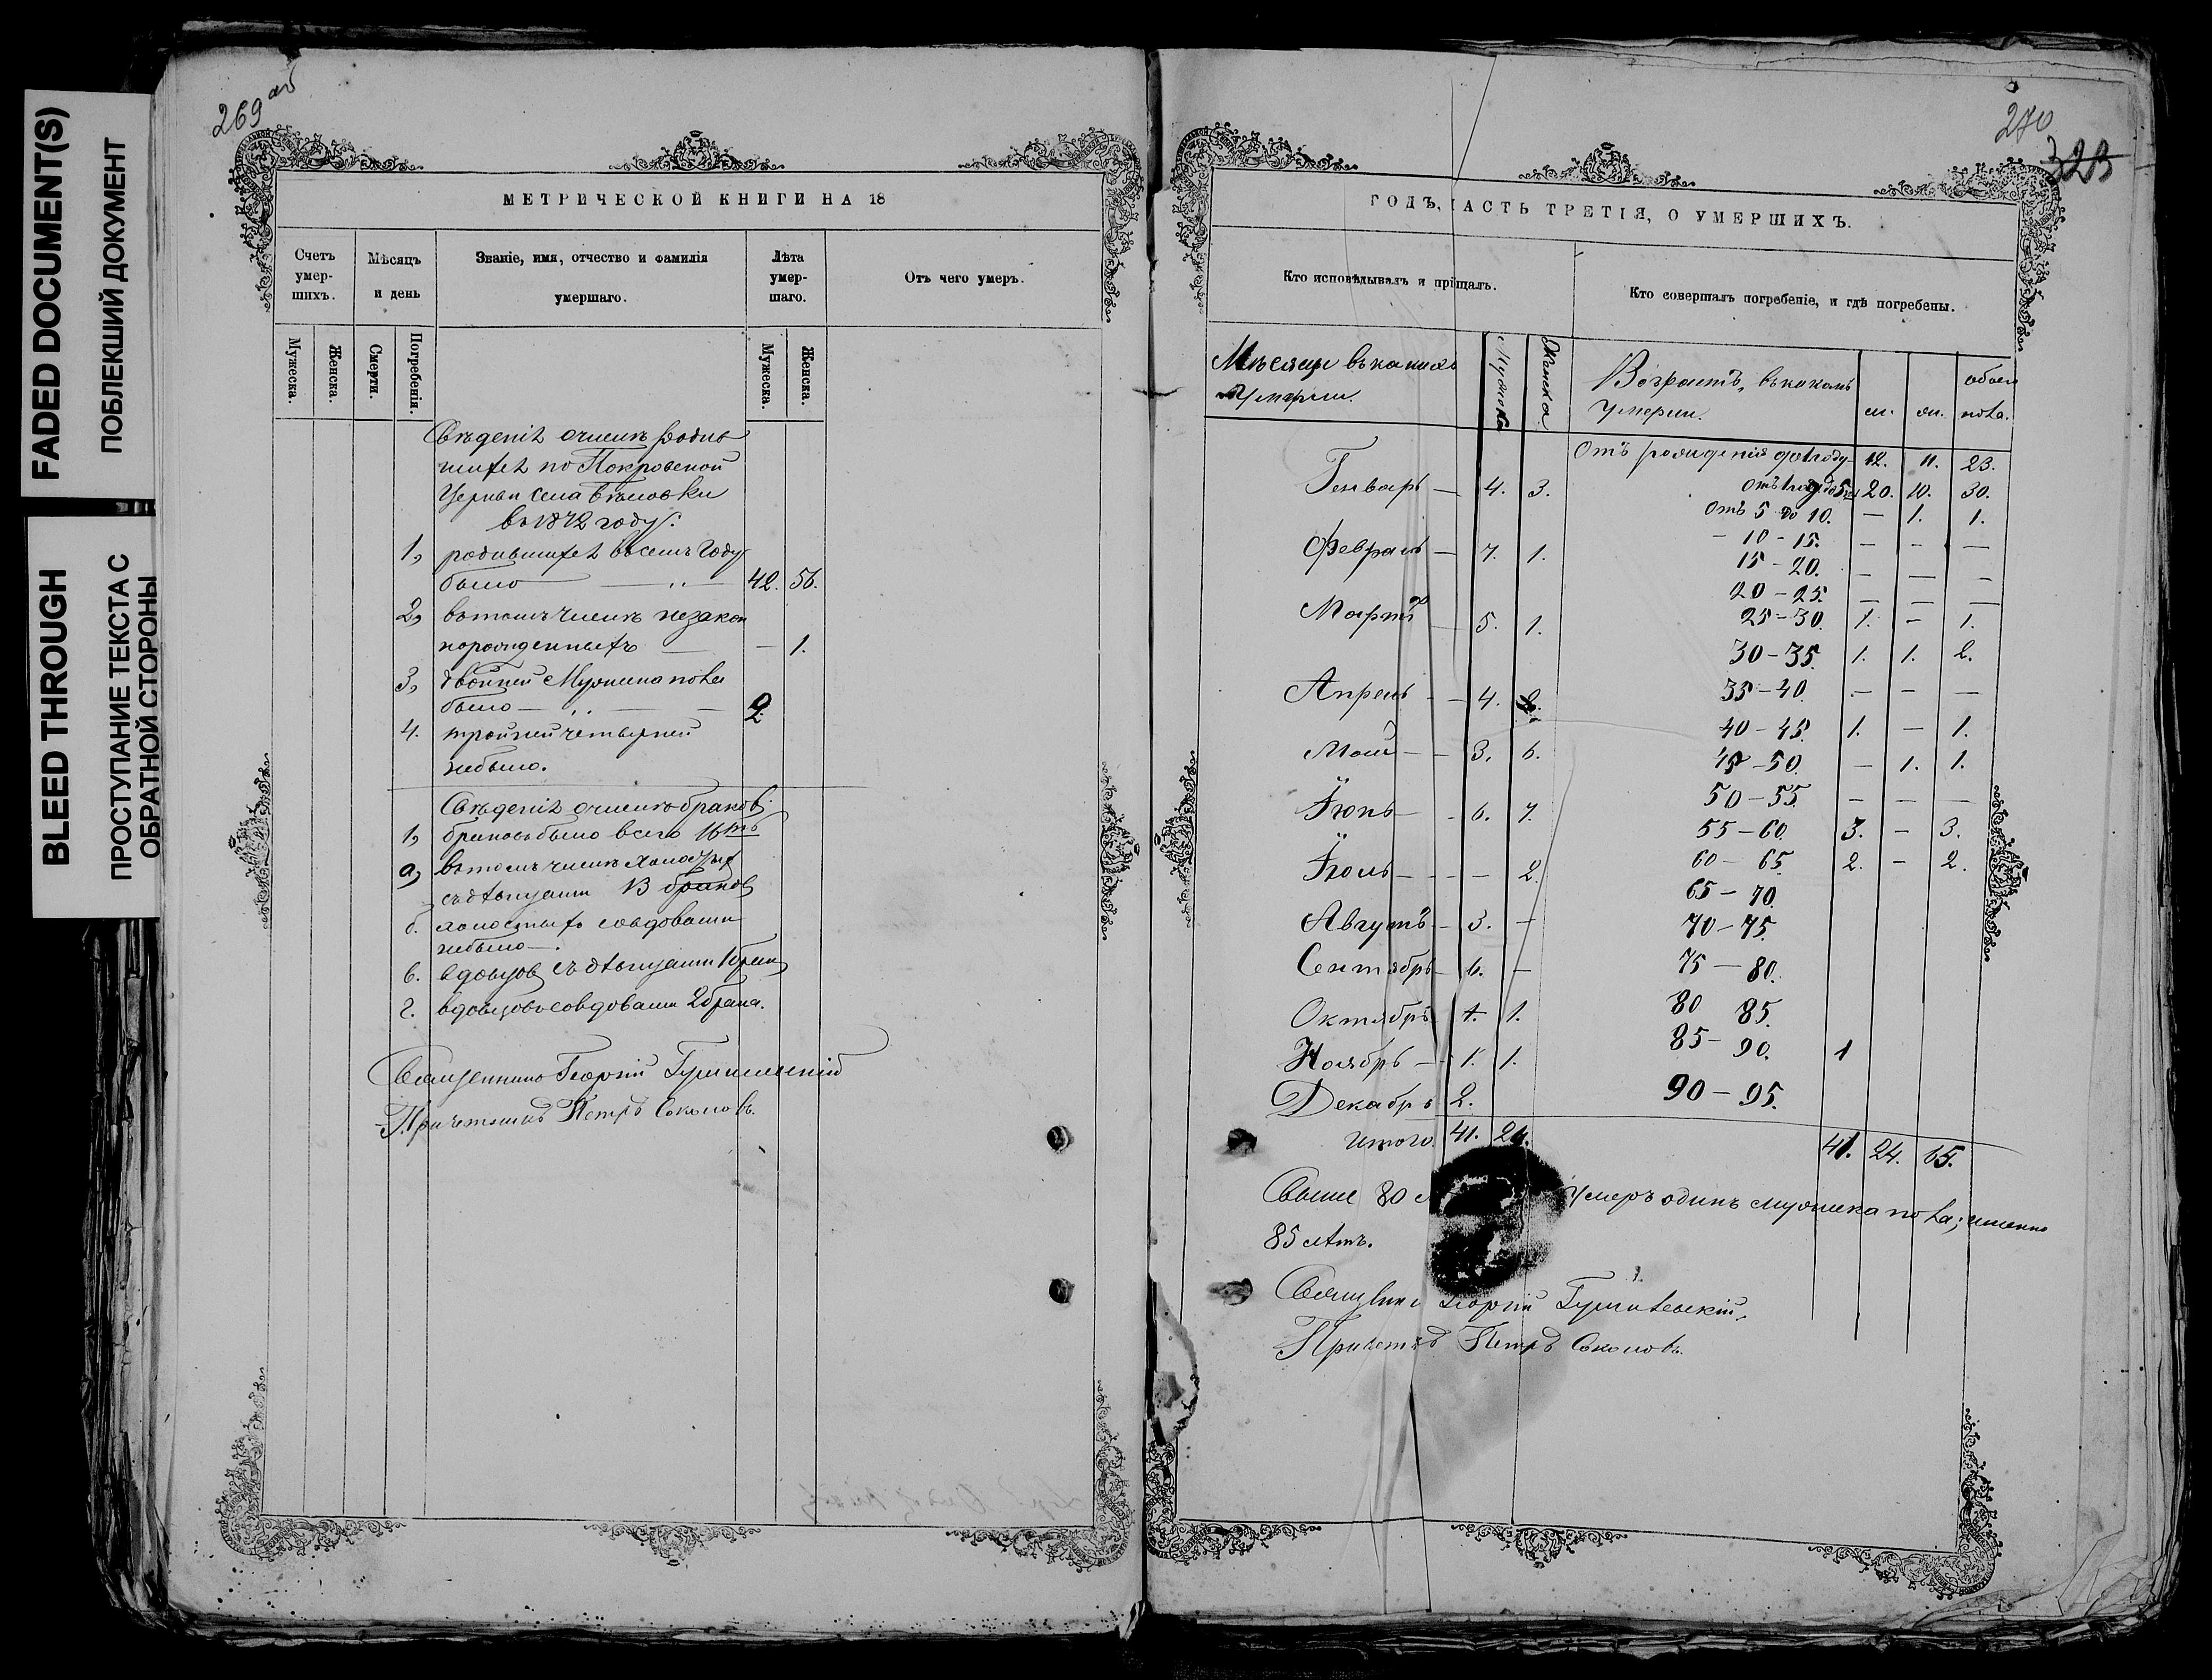 FADED DOCUMENT(S)
ПОБЛЕКШИЙ ДОКУМЕНТ
BLEED THROUGH
ПРОСТУПАНИЕ ТЕКСТА С
ОБРАТНОЙ СТОРОНЫ
269 об
МЕТРИЧЕСКОЙ КНИГИ НА 18
Счетъ умер-шихъ.
Мѣсяцъ и день
Званіе, имя, отчество и фамилія умершаго.
Лѣта умер-шаго.
Отъ чего умеръ.
Мужеска.
Женска.
Смерти.
Погребенія.
Мужеска.
Женска.
Свѣденія очислѣ родив
шихся по Покровской
Церкви села
въ 1872 году.
1, родившихся въсемъ Году
было 42. 56.
2, вътомъ числѣ незакон
норожденныхъ — 1.
3, двойней Мужска пола
было — 2
4. тройней четверней
небыло.
Свѣденія очислѣ браковъ.
1, браковъ было всего 16ть
а, вътомъ числѣ холостых
съ дѣвицами 13 браков
б. холостыхъ совдовами
небыло —.
в. вдовцов съ дѣвицами 1 брак
г. вдовцовъ совдовами 2 брака.
Священникъ Георгій
Причетникъ Петръ Соколовъ.
270
323
ГОДЪ, ЧАСТЬ ТРЕТІЯ, О УМЕРШИХЪ.
Кто исповѣдывалъ и пріщалъ.
Кто совершалъ погребеніе, и гдѣ погребены.
Мѣсяцы въкакихъ
Умерли.
Мужска
Женска
Возрастъ, въкакомъ
умерли.
м. ж. обоего пола.
Генварь — 4. 3.
Февраль — 7. 1.
Мартъ 5. 1.
Апрель — 4.
Май — 3. 6.
Іюнь — 6. 7.
Іюль — — 2.
Августъ — 3. —
Сентябрь —
Октябрь 1.
Ноябрь — 1. 1.
Декабрь 2.
Итого. 41. 24.
Отъ рожденія до 1 году 12. 11. 23.
отъ 1 году до 5 20. 10. 30.
Отъ 5 до 10. — 1. 1.
— 10 – 15. — — —
15 – 20. — — —
20 – 25. — — —
25 – 30. 1. — 1.
30 – 35. 1. 1. 2.
35 – 40. — — —
40 – 45. 1. — 1.
45 – 50. — 1. 1.
50 – 55. — — —
55 – 60. 3. — 3.
60 – 65. 2. — 2.
65 – 70.
70 – 75.
75 – 80.
80 85.
85 – 90. 1
90 – 95.
41. 24. 65.
Свыше 80 умеръ одинъ мужеска пола; именно
85 лѣтъ.
Георгій
Петръ Соколовъ.